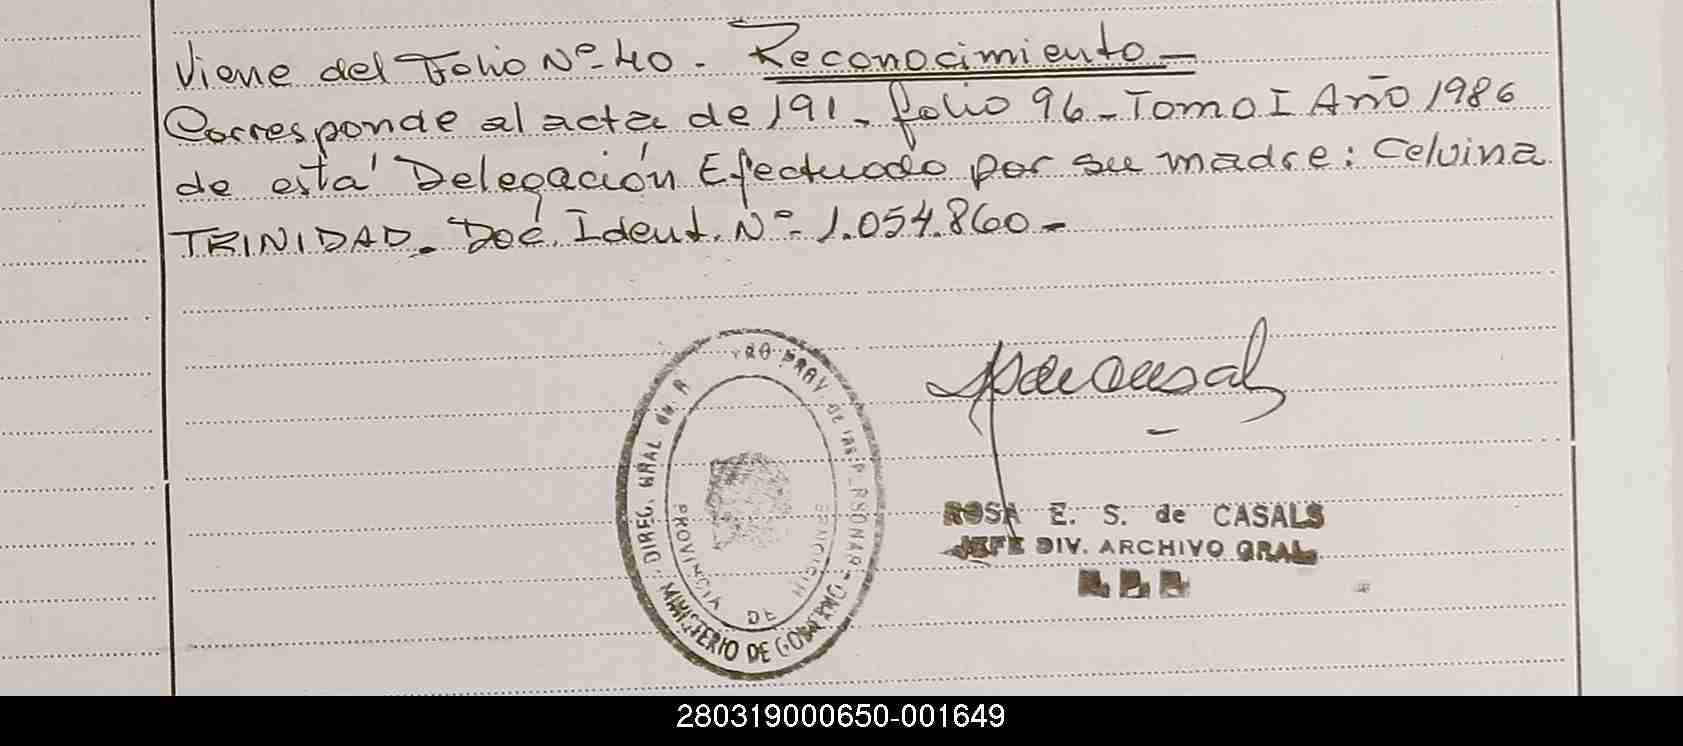 Viene del Folio Nº 40 - Reconocimiento -
Corresponde al acta de 191 - folio 96 - Tomo I Año 1986
de está Delegación Efectuado por su madre: Celvina
TRINIDAD - Doc. Ident. Nº - 1.054.860 -
DIREC. GRAL de PERSONAS
MINISTERIO DE GOBIERNO
PROVINCIA DE
ROSA E. S. de CASALS
JEFE DIV. ARCHIVO GRAL.
280319000650-001649